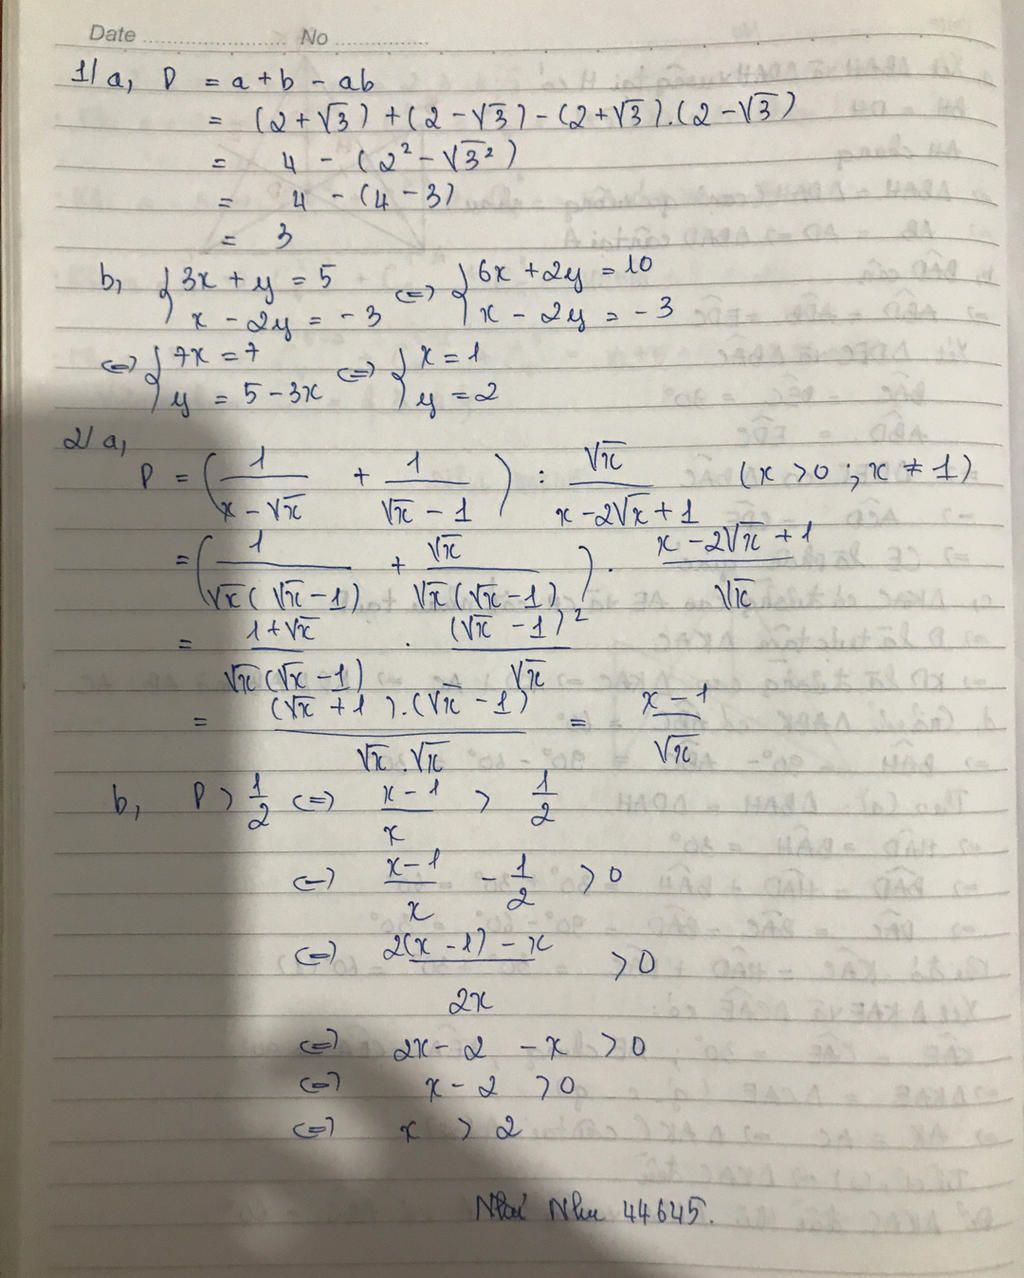 Date .................... No ....................
1/ a, P = a + b - ab
= (2 + √3) + (2 - √3) - (2 + √3).(2 - √3)
= 4 - (2² - √3²)
= 4 - (4 - 3)
= 3
b, { 3x + y = 5 ; x - 2y = -3 <=> { 6x + 2y = 10 ; x - 2y = -3
<=> { 7x = 7 ; y = 5 - 3x <=> { x = 1 ; y = 2
2/ a,
P = ( 1/(x - √x) + 1/(√x - 1) ) : √x/(x - 2√x + 1) (x > 0 ; x ≠ 1)
= ( 1/(√x(√x - 1)) + √x/(√x(√x - 1)) ) . (x - 2√x + 1)/√x
= (1 + √x)/(√x(√x - 1)) . (√x - 1)²/√x
= ((√x + 1).(√x - 1))/(√x.√x) = (x - 1)/√x
b, P > 1/2 <=> (x - 1)/x > 1/2
<=> (x - 1)/x - 1/2 > 0
<=> (2(x - 1) - x)/2x > 0
<=> 2x - 2 - x > 0
<=> x - 2 > 0
<=> x > 2
Như 44645.